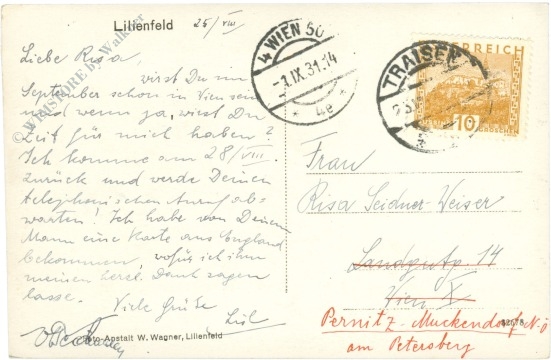 Lilienfeld
25/VIII
Liebe Risa,
wirst Du im
September schon in Wien sein
und wenn ja, wirst Du
Zeit für mich haben?
Ich komme am 28/VIII.
zurück und werde Deinen
telephonischen Anruf ab-
warten! Ich habe von Deinem
Mann eine Karte aus England
bekommen, wofür ich ihm
meinen herzl. Dank sagen
lasse.
Viele Grüße
Lisl
Foto-Anstalt W. Wagner, Lilienfeld
© WEBSTORE by Walker
4 WIEN 50
-1.IX.31.14
* 4e *
TRAISEN
ÖSTERREICH
10
GROSCHEN
Frau
Risa Seidner-Weiser
Landgutg. 14
Wien X.
Pernitz-Muckendorf N.Ö
am Petersberg